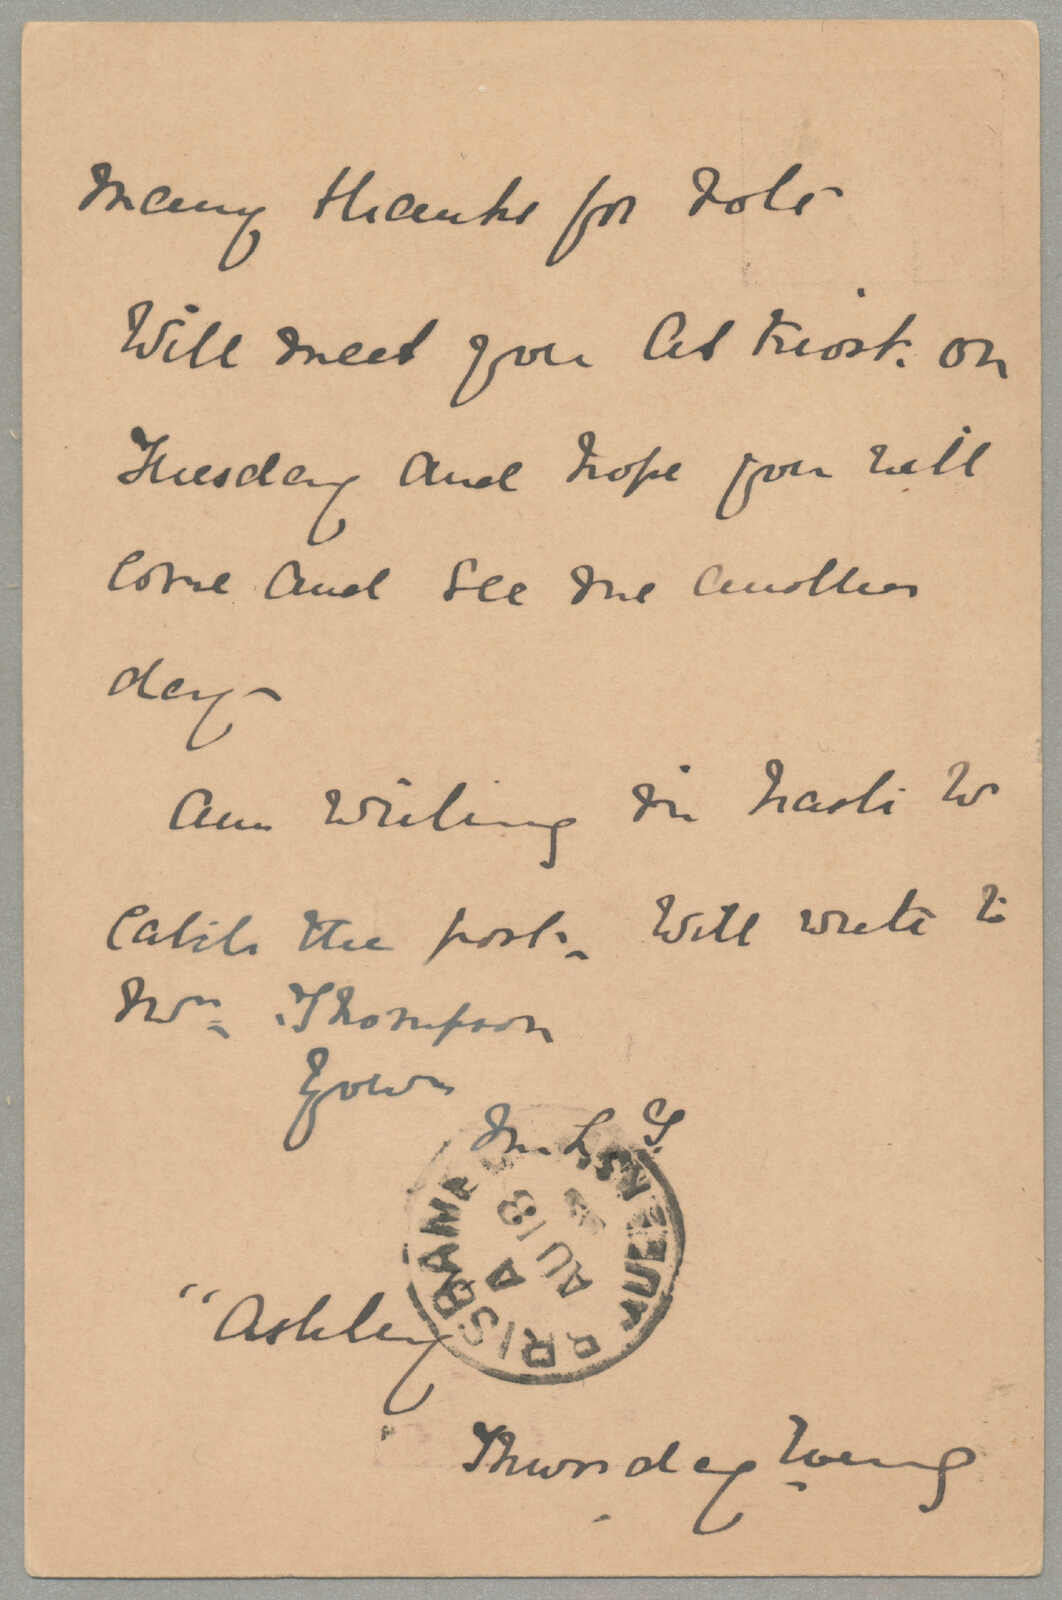 Many thanks for note
Will meet you at on
Tuesday and hope you will
come and see me another
day -
Am writing in haste to
catch the post. Will write to
Thompson
Yours
M. L. T.
BRISBANE QUEENSL
A
AU 18
"Ashley
Thursday Eveng